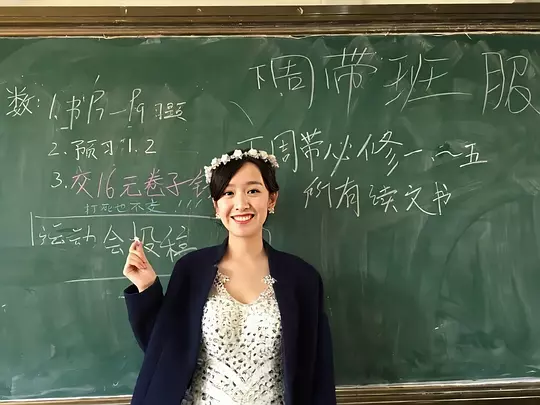 数: 1.书P₇—P₉习题
2.预习1.2
3.交16元卷子钱
打死也不交!!!
运动会投稿
下周带班服
下周带必修一~五
所有读文书